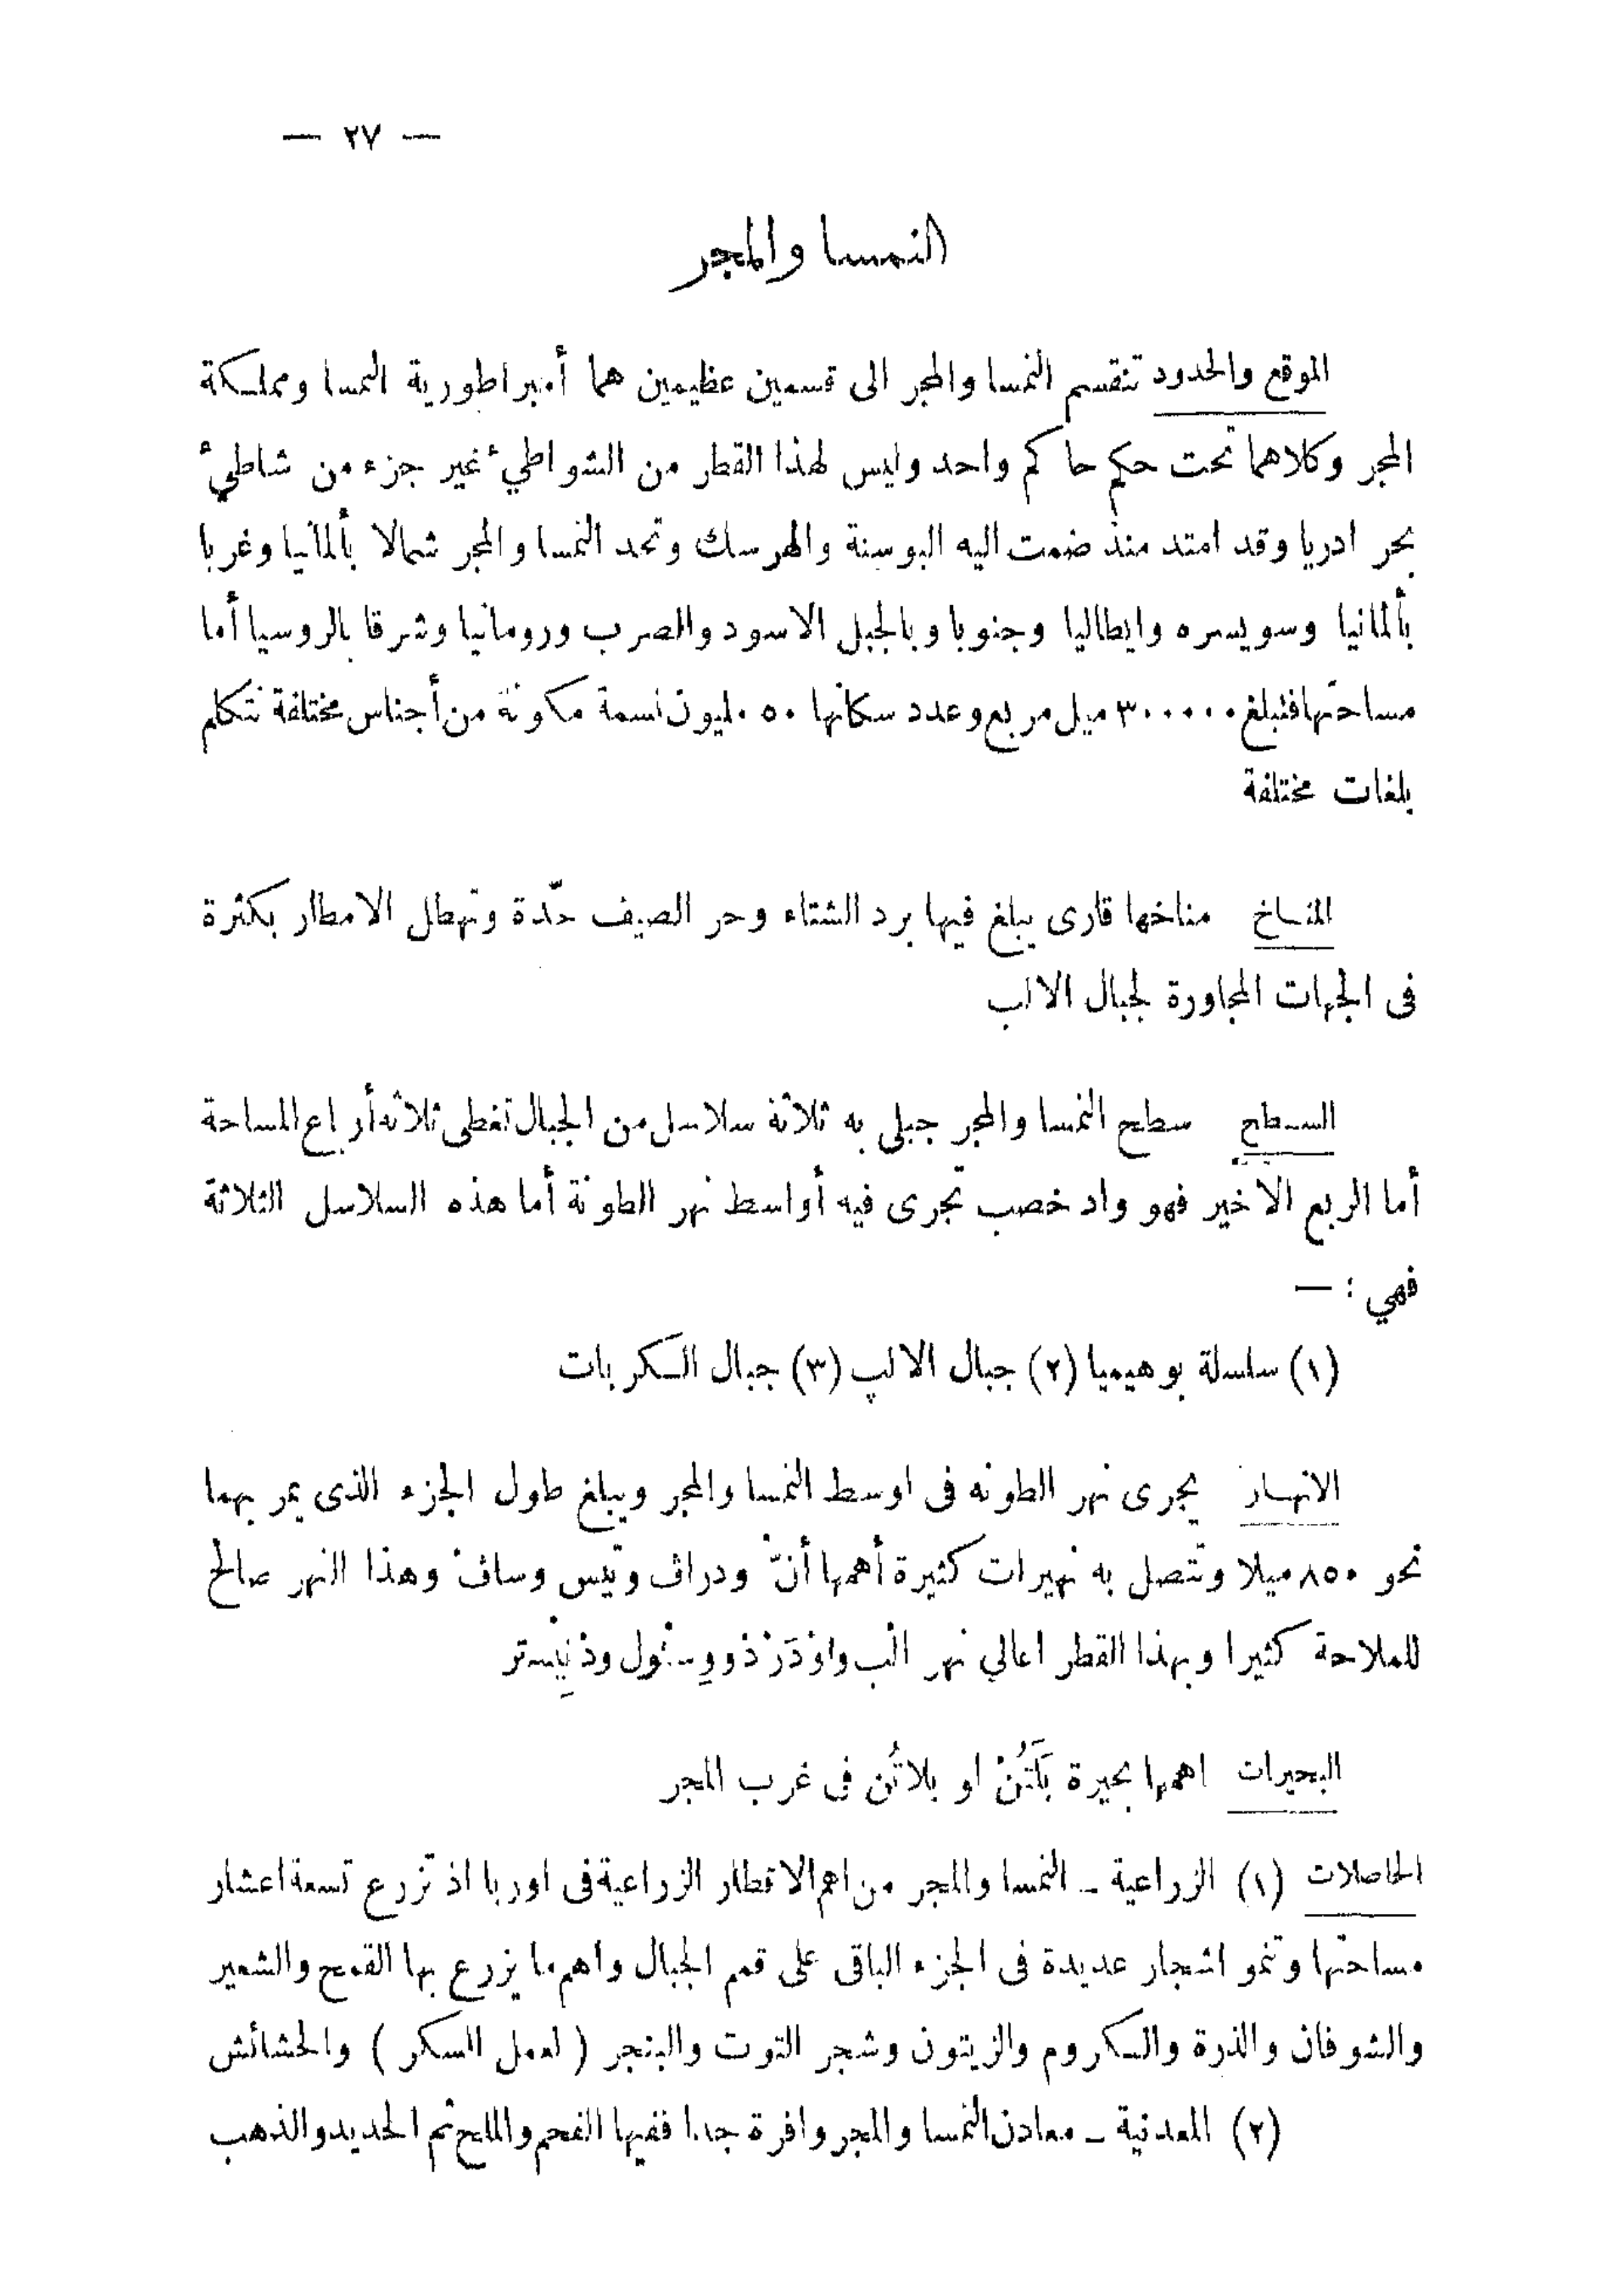 — ٢٧ —
النمسا والمجر
الموقع والحدود تنقسم النمسا والمجر الى قسمين عظيمين هما أمبراطورية النمسا ومملكة
المجر وكلاهما تحت حكم حاكم واحد وليس لهذا القطر من الشواطئ غير جزء من شاطئ
بحر ادريا وقد امتد منذ ضمت اليه البوسنة والهرسك وتحد النمسا والمجر شمالا بألمانيا وغربا
بألمانيا وسويسره وايطاليا وجنوبا وبالجبل الاسود والصرب ورومانيا وشرقا بالروسيا أما
مساحتها فتبلغ ٣٠٠٠٠٠ ميل مربع وعدد سكانها ٥٠ مليون نسمة مكونة من أجناس مختلفة تتكلم
بلغات مختلفة
المناخ مناخها قارى يبلغ فيها برد الشتاء وحر الصيف حدّة وتهطل الامطار بكثرة
فى الجهات المجاورة لجبال الالب
السطح سطح النمسا والمجر جبلى به ثلاثة سلاسل من الجبال تغطى ثلاثه أرباع المساحة
أما الربع الاخير فهو واد خصب تجرى فيه أواسط نهر الطونة أما هذه السلاسل الثلاثة
فهي : —
(١) سلسلة بوهيميا (٢) جبال الالپ (٣) جبال الكربات
الانهار يجرى نهر الطونه فى اوسط النمسا والمجر ويبلغ طول الجزء الذى يمر بهما
نحو ٨٥٠ ميلا وتتصل به نهيرات كثيرة أهمها أنّ ودراف وتيس وساف وهذا النهر صالح
للملاحة كثيرا وبهذا القطر اعالي نهر الب
البحيرات اهمها بحيرة بَلَتُنْ او بلاتُن فى غرب المجر
الحاصلات (١) الزراعية ـ النمسا والمجر من اهم الاقطار الزراعية فى اوربا اذ تزرع تسعة اعشار
مساحتها وتنمو اشجار عديدة فى الجزء الباقى على قمم الجبال واهم ما يزرع بها القمح والشعير
والشوفان والذرة والكروم والزيتون وشجر التوت والبنجر ( لعمل السكر ) والحشائش
(٢) المعدنية ـ معادن النمسا والمجر وافرة جدا ففيها الفحم والملح ثم الحديد والذهب